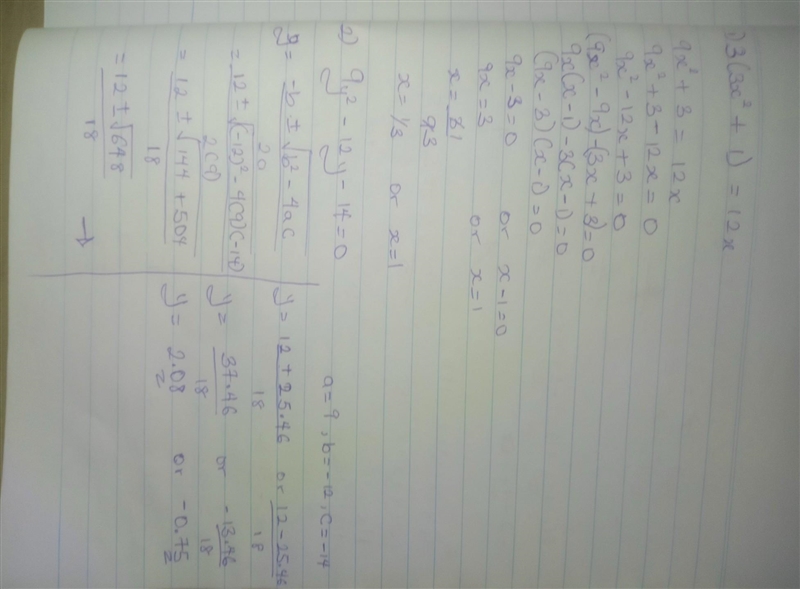 1) 3(3x² + 1) = 12x
9x² + 3 = 12x
9x² + 3 - 12x = 0
9x² - 12x + 3 = 0
(9x² - 9x) - (3x + 3) = 0
9x(x - 1) - 3(x - 1) = 0
(9x - 3)(x - 1) = 0
9x - 3 = 0 or x - 1 = 0
9x = 3 or x = 1
x = 3 1
9 3
x = 1/3 or x = 1
2) 9y² - 12y - 14 = 0
a = 9, b = -12, c = -14
y = -b ± √b² - 4ac
2a
= 12 ± √(-12)² - 4(9)(-14)
2(9)
= 12 ± √144 + 504
18
= 12 ± √648
18
→
y = 12 + 25.46 or 12 - 25.46
18 18
y = 37.46 or -13.46
18 18
y = 2.08 or -0.75